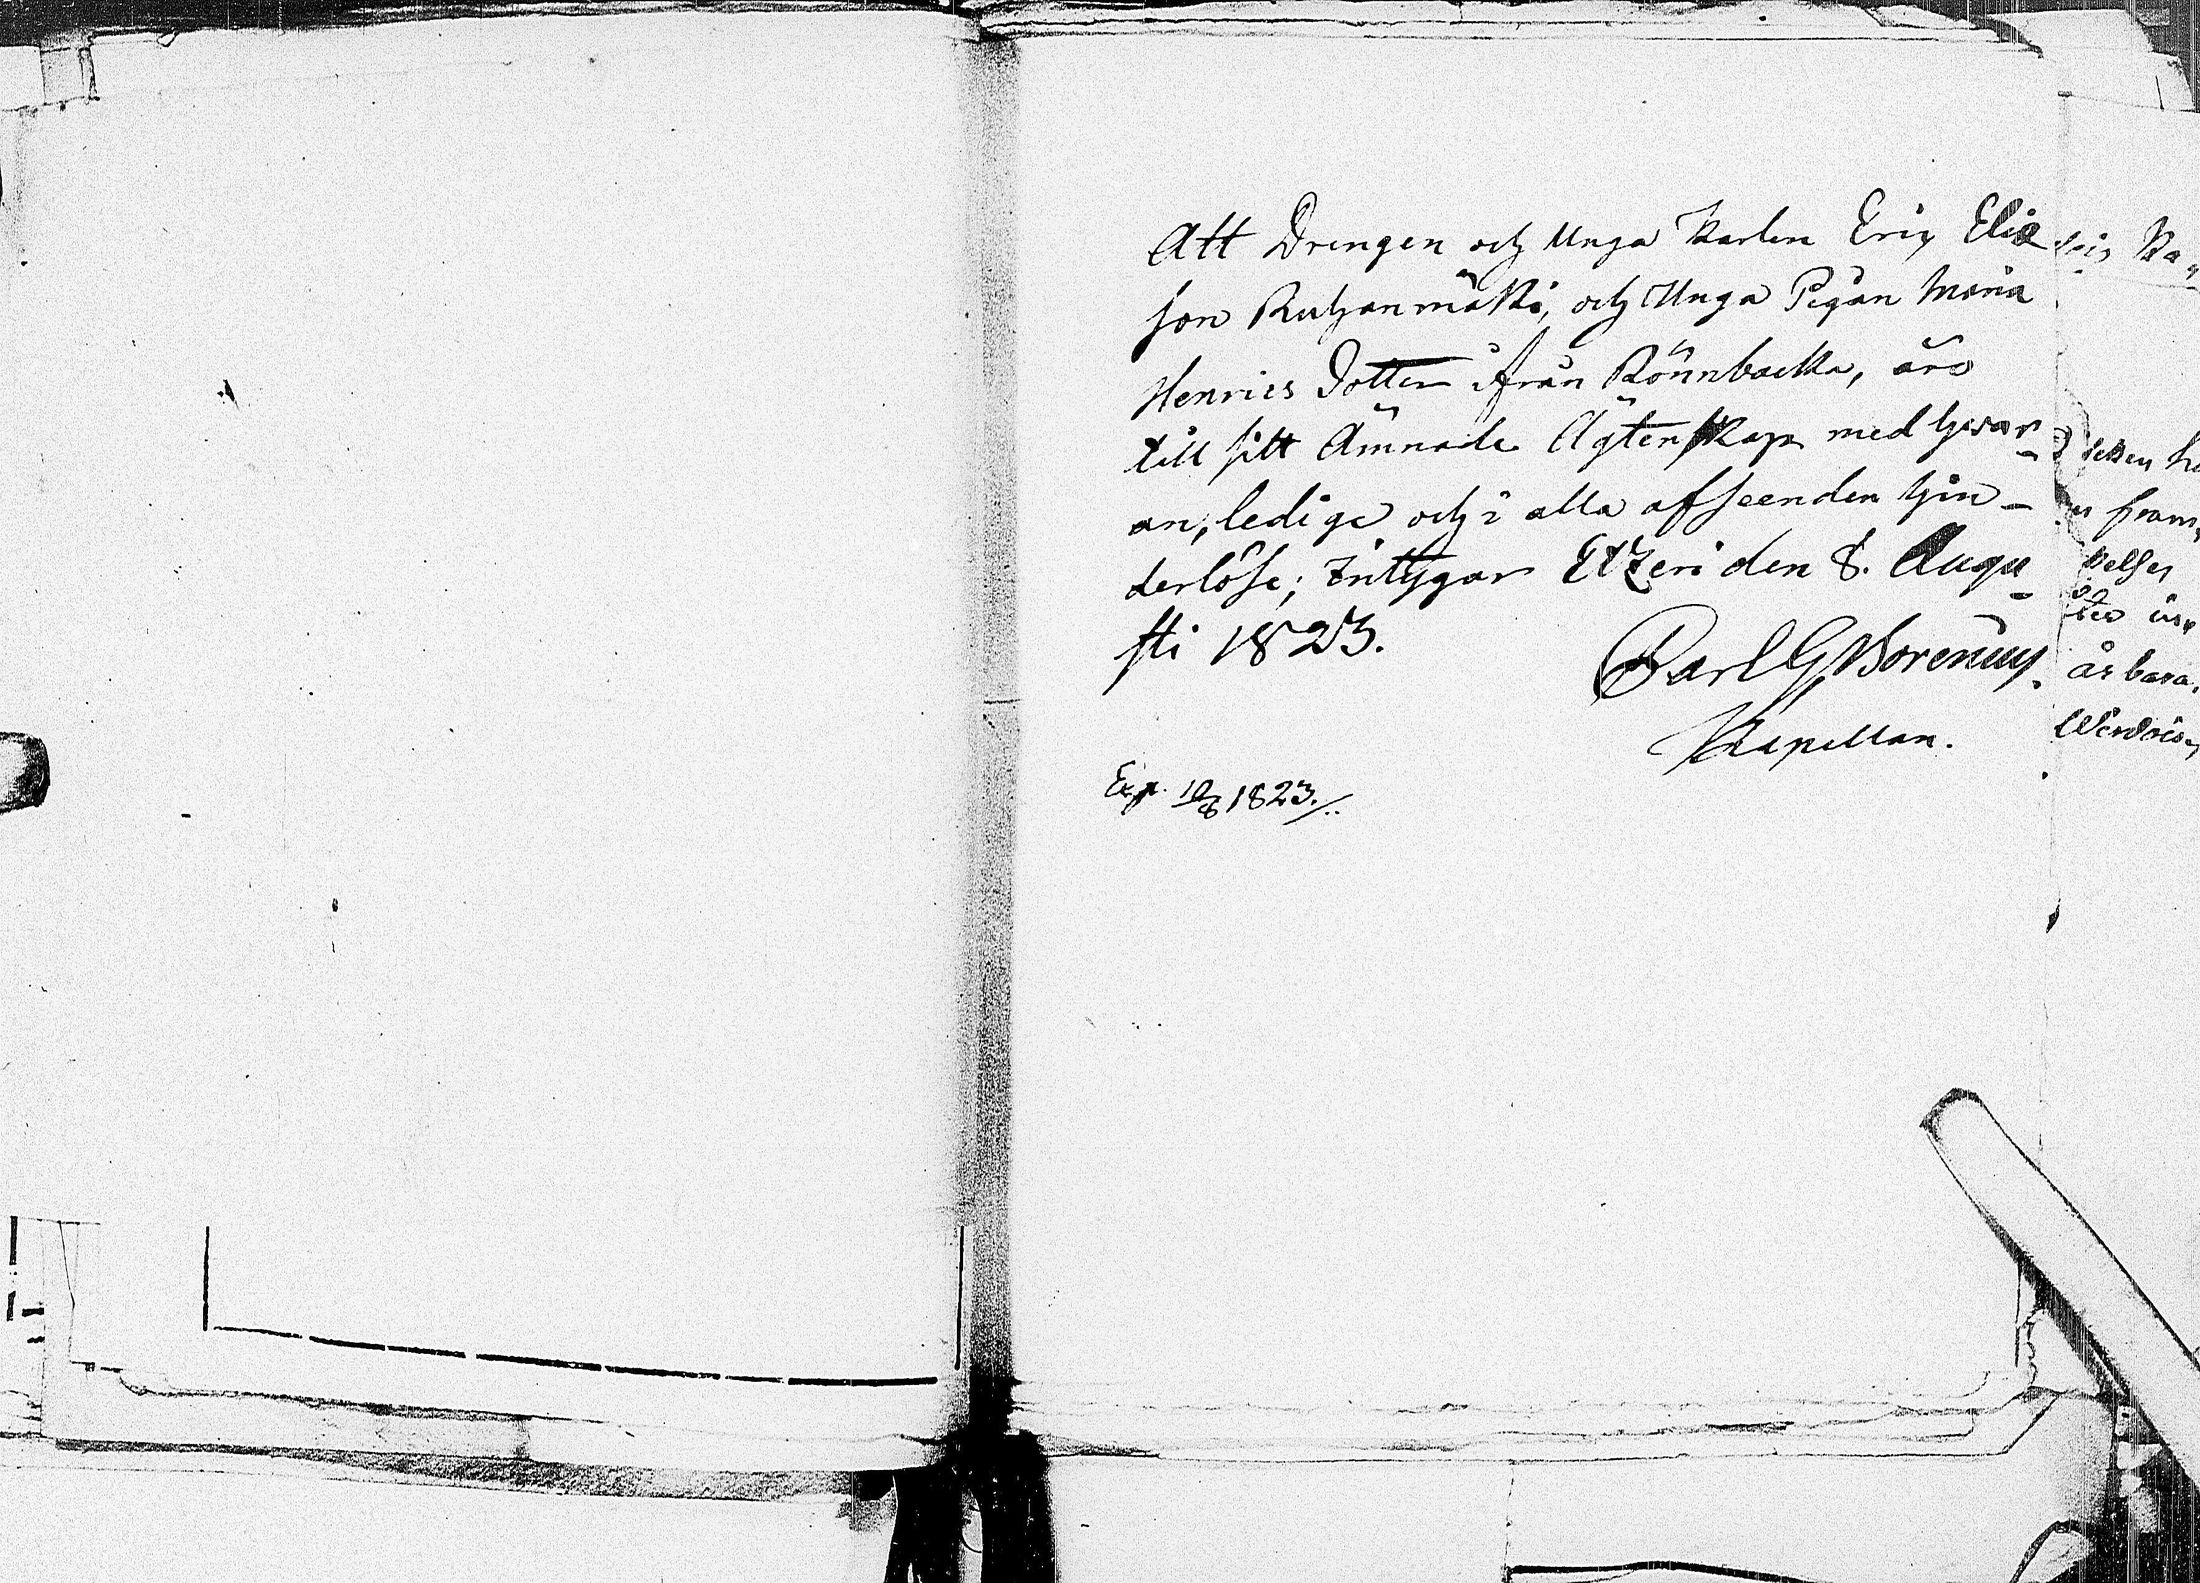 Att Drengen och Unga Karlen Eric Elia
son Ruhanmäki, och Unga Pigan Maria
Henrics Dotter ifrån Rönnbacka, äro
till sitt Ämnade Ägtenskap med hvar
an, ledige och i alla afseenden hin-
derlöse; Intygar Etzeri den 8. Augu
sti 1823.
Carl G Borenius.
Kapellan.
Exp. 10/8 1823./..
fram,
år bara,